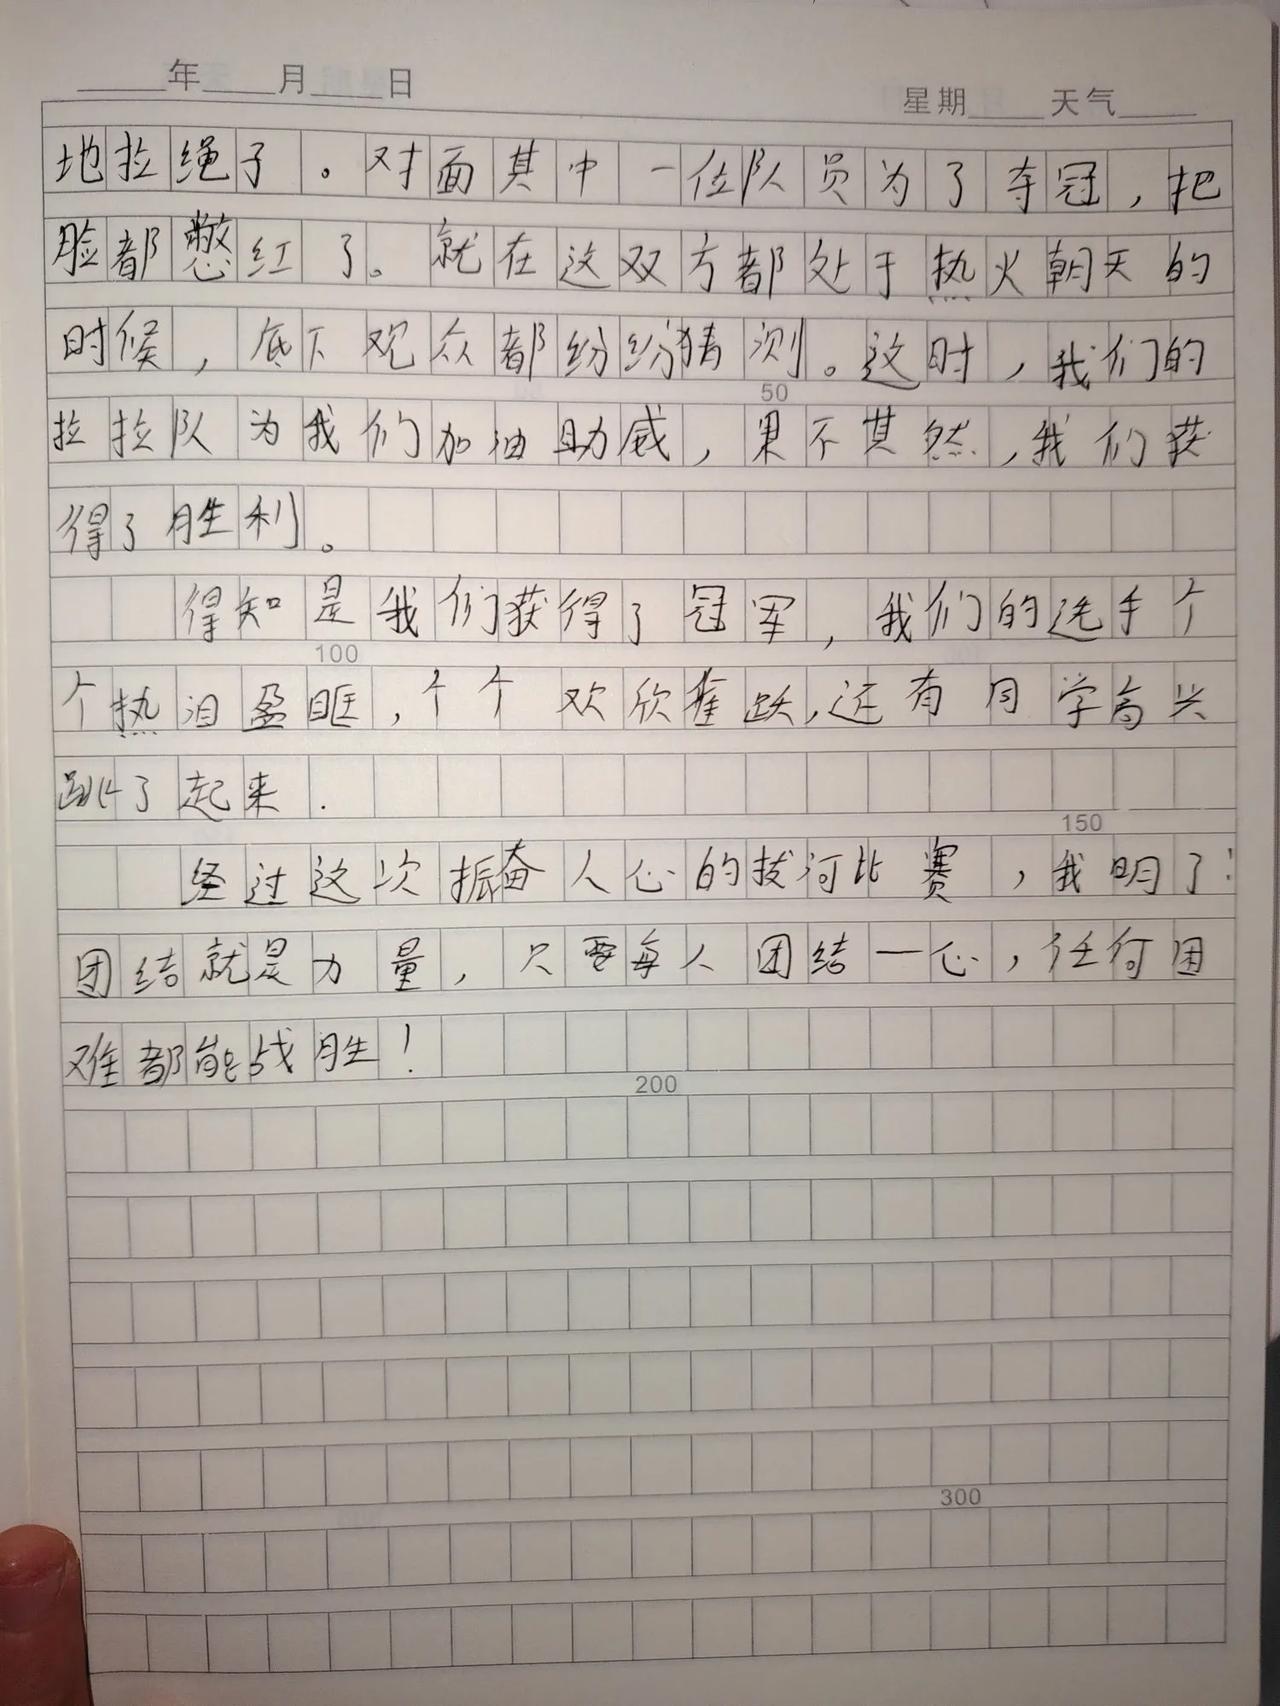 年 月 日
星期 天气
地拉绳子。对面其中一位队员为了夺冠，把
脸都憋红了。就在这双方都处于热火朝天的
时候，底下观众都纷纷猜测。这时，我们的
50
拉拉队为我们加油助威，果不其然，我们获
得了胜利。
得知是我们获得了冠军，我们的选手个
100
个热泪盈眶，个个欢欣雀跃，还有同学高兴
跳了起来.
150
经过这次振奋人心的拔河比赛，我明了：
团结就是力量，只要每人团结一心，任何困
难都能战胜！
200
300